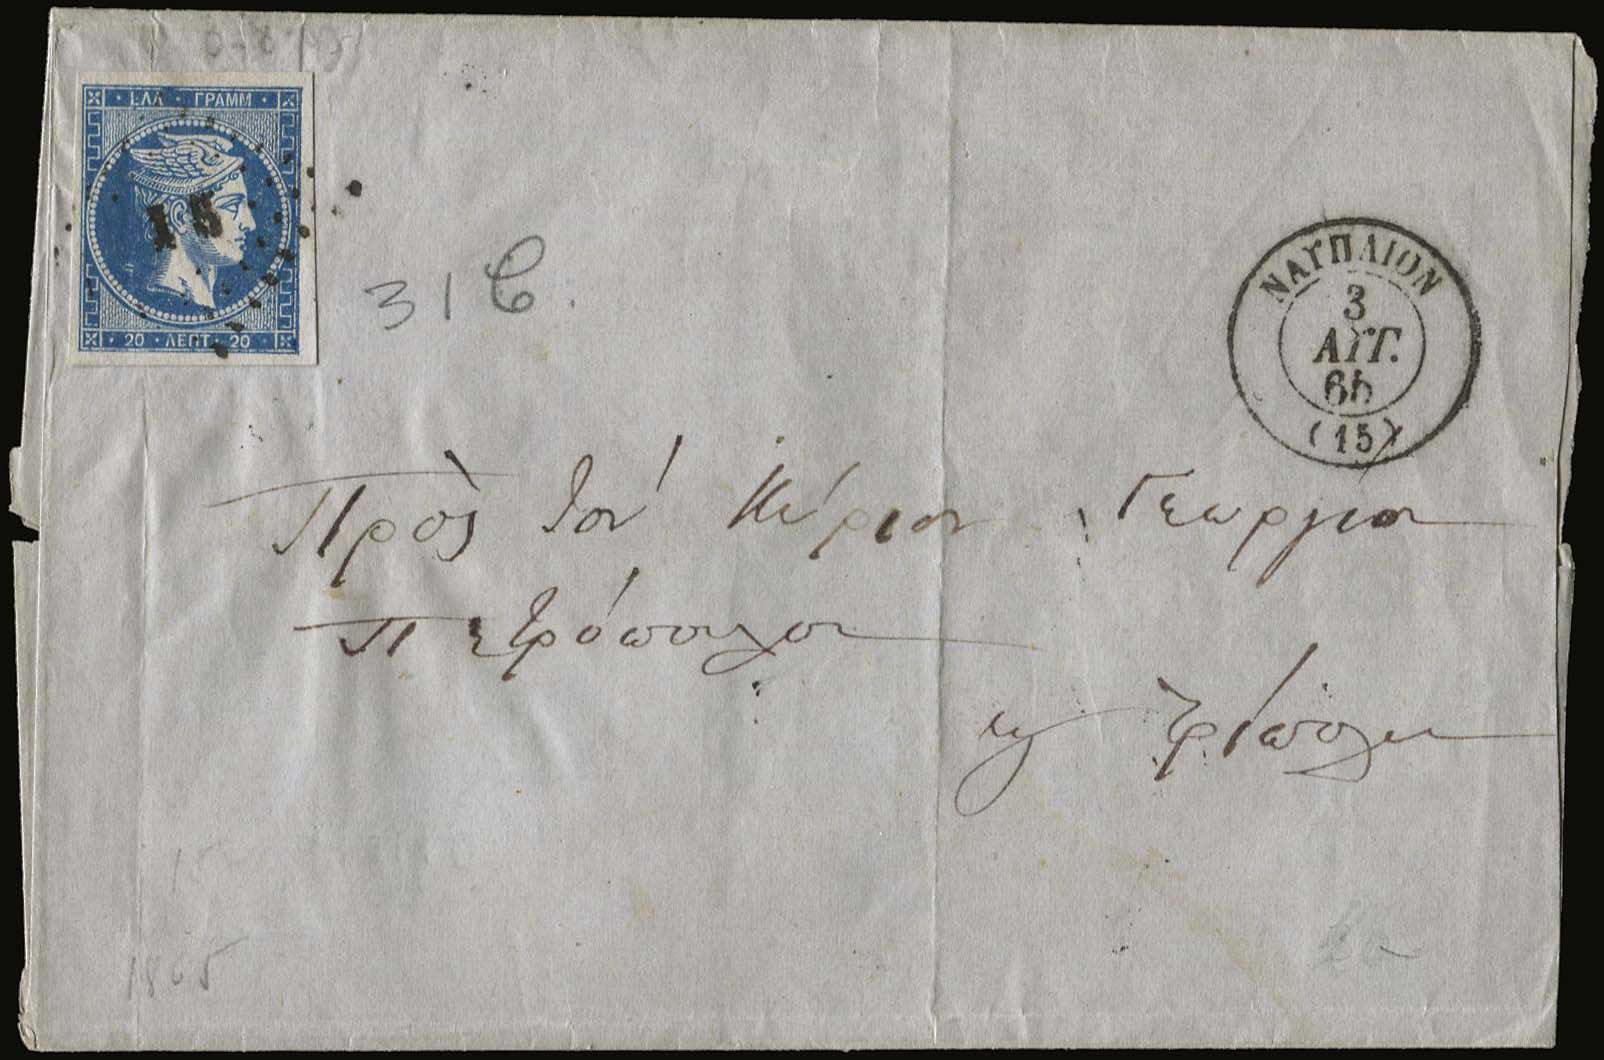 ΕΛΛ · ΓΡΑΜΜ
15
20 · ΛΕΠΤ · 20
31
ΝΑΥΠΛΙΟΝ
3
ΑΥΓ.
65
(15)
Πρὸς τὸν Κύριον Γεώργιον
Πετρόπουλον
εἰς Τρίπολιν
15
1865